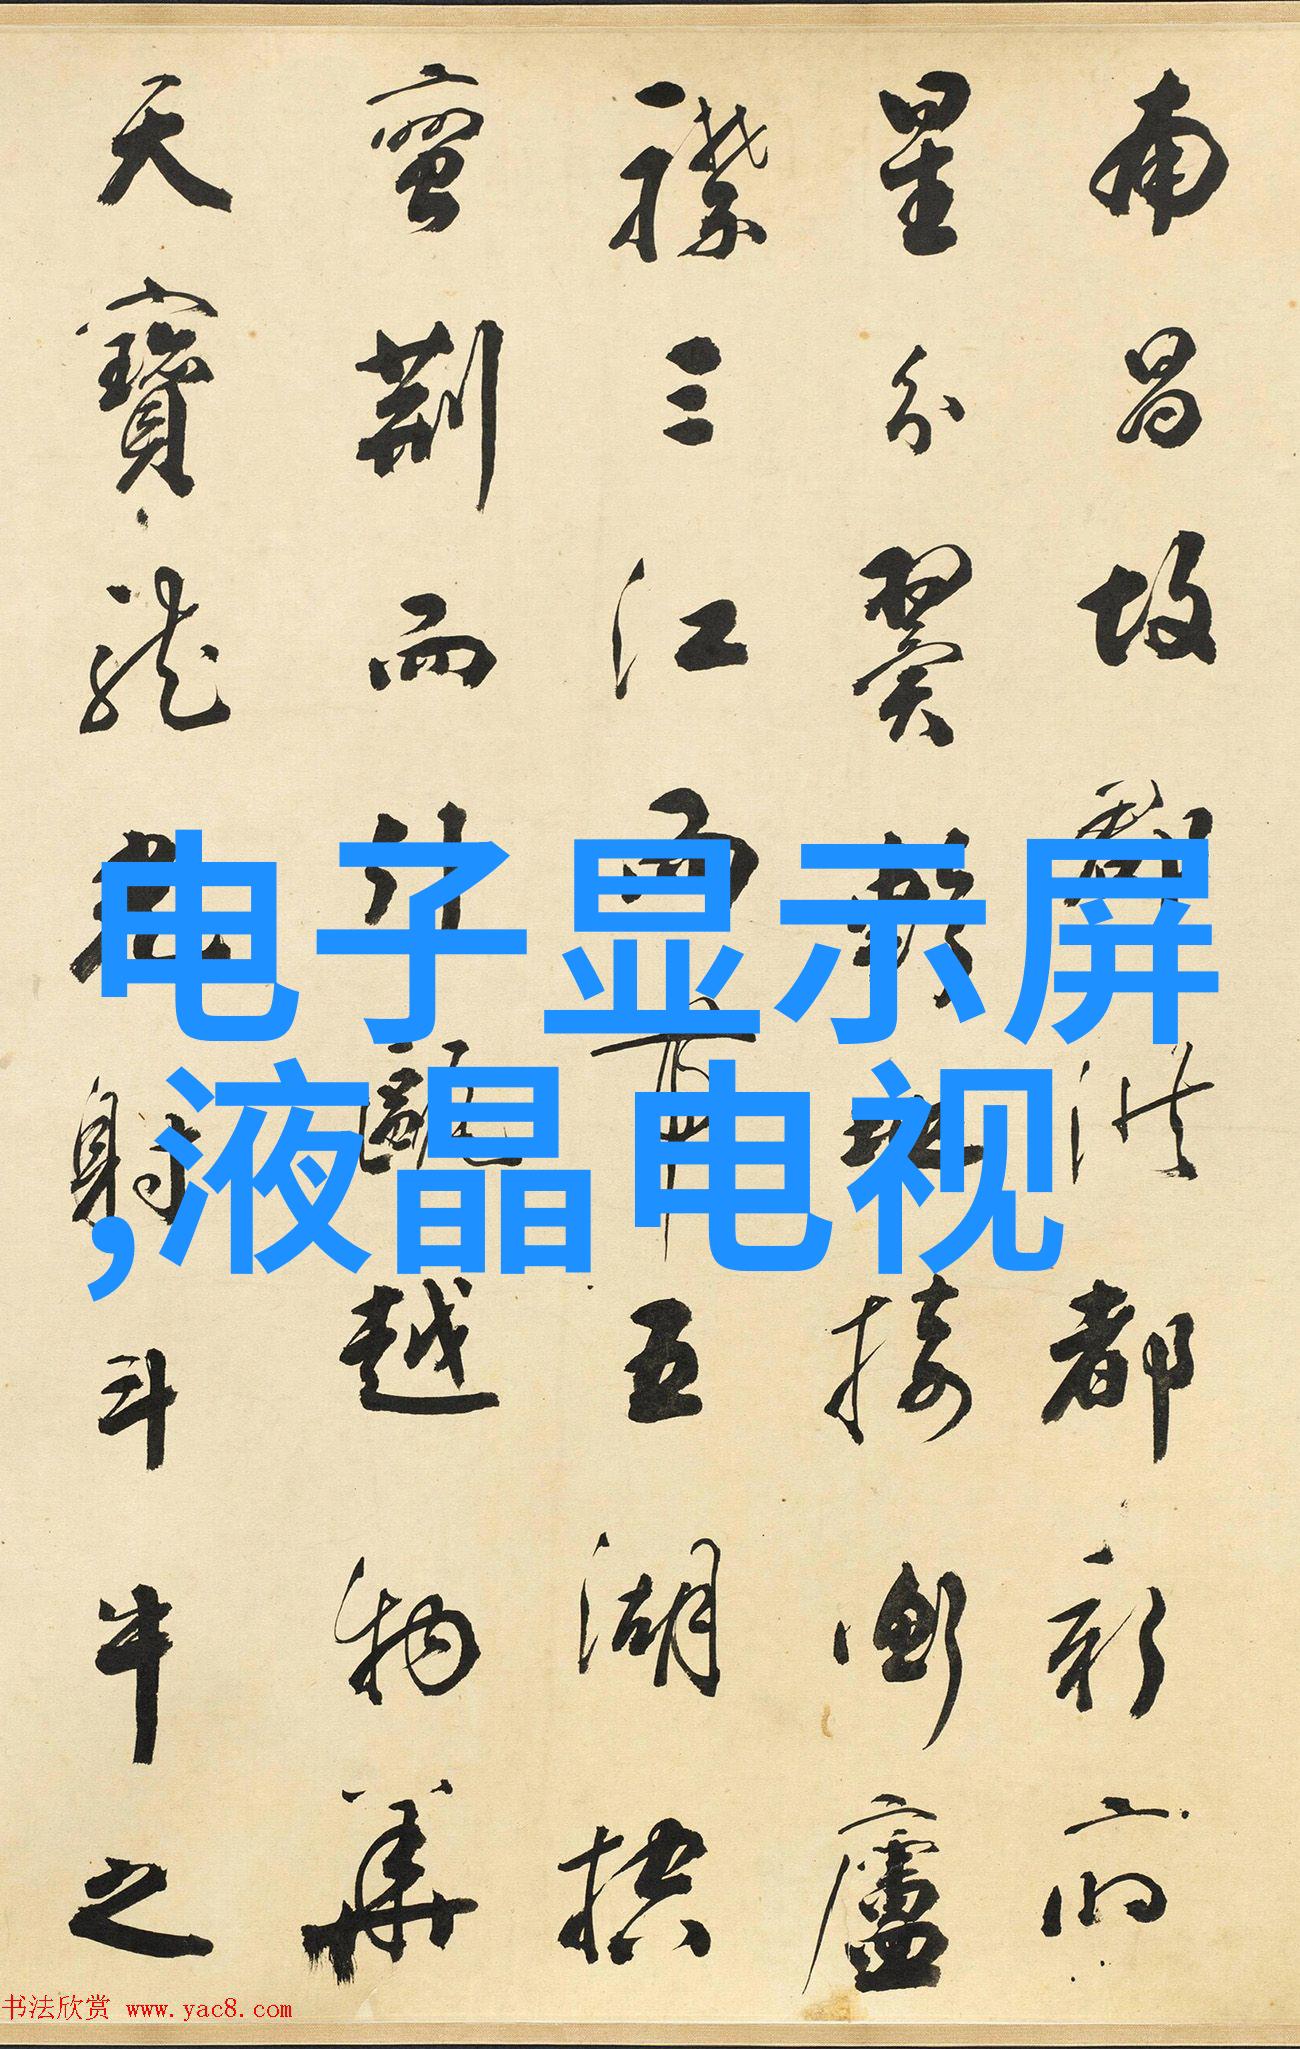 南昌故郡洪都新府
星分翼軫地接衡廬
襟三江而帶五湖控
蠻荊而引甌越物華
天寶龍光射斗牛之
电子显示屏
,液晶电视
书法欣赏 www.yac8.com